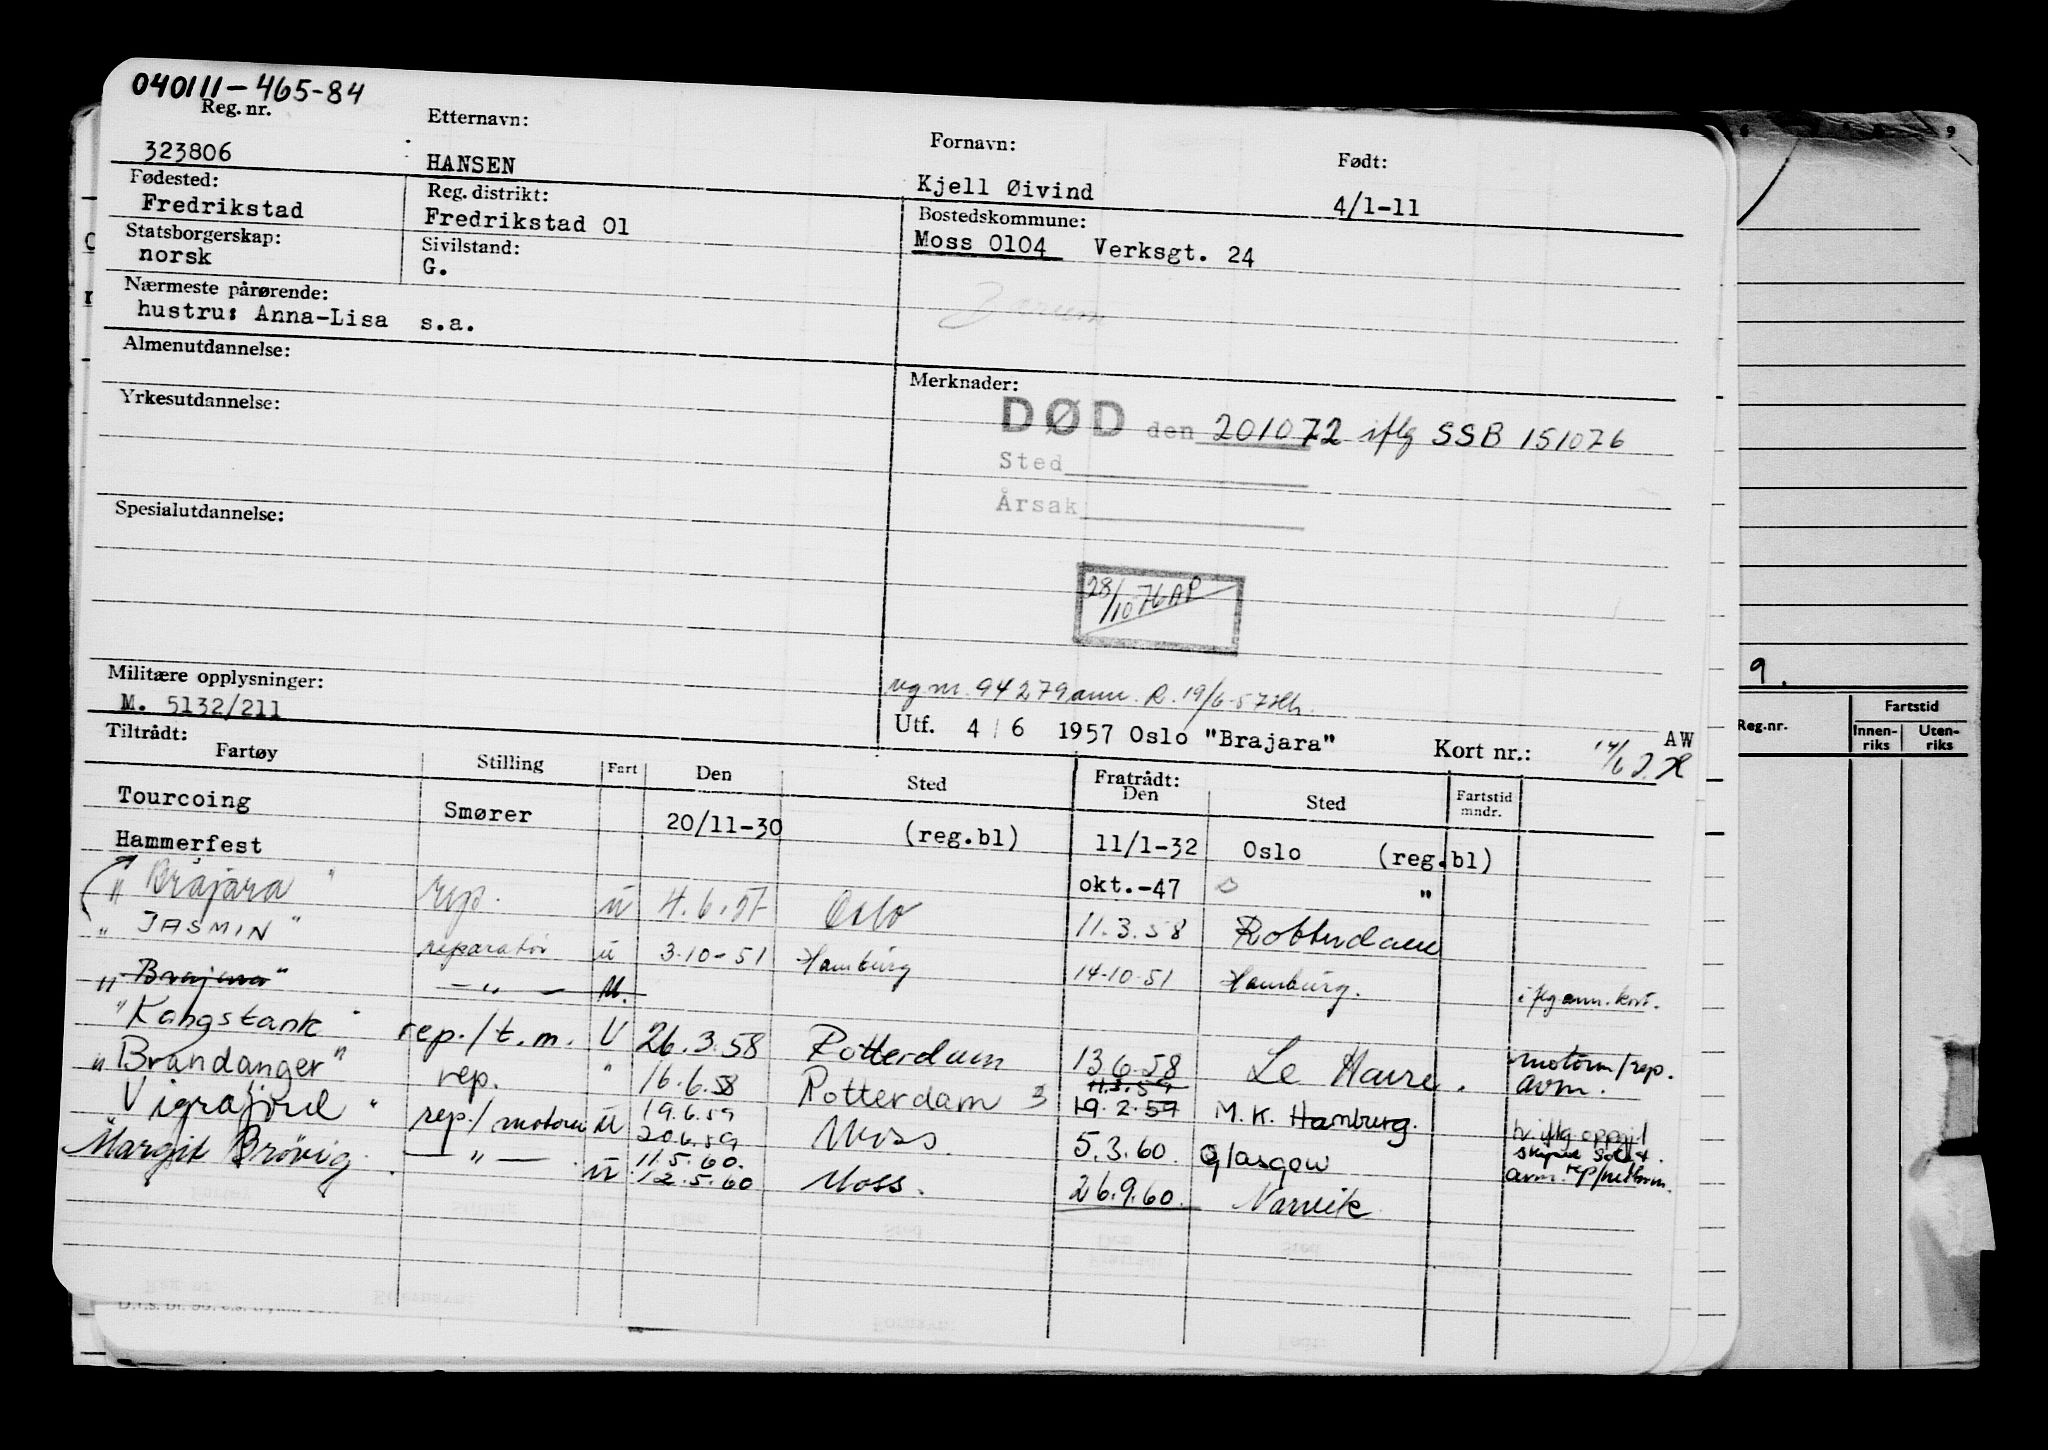 040111-465-84
Reg. nr. Etternavn: Fornavn: Født:
323806 HANSEN Kjell Øivind 4/1-11
Fødested: Reg. distrikt: Bostedskommune:
Fredrikstad Fredrikstad 01 Moss 0104 Verksgt. 24
Statsborgerskap: Sivilstand:
norsk G.
Nærmeste pårørende:
hustru: Anna-Lisa s.a.
Almenutdannelse: Merknader:
Yrkesutdannelse: DØD den 201072 iflg SSB 151076
Sted
Årsak
Spesialutdannelse:
28/10 76 AP
Militære opplysninger:
M. 5132/211
94279 ann. R. 19/6-57
Utf. 4/6 1957 Oslo "Brajara" Kort nr.: AW
14/6
Tiltrådt: Fratrådt:
Fartøy Stilling Fart Den Sted Den Sted Fartstid mndr.
Tourcoing Smører 20/11-30 (reg.bl) 11/1-32 Oslo (reg.bl)
Hammerfest okt.-47 "
" Brajara " rep. u 4.6.57 Oslo 11.3.58 Rotterdam
" JASMIN " reparatør u 3.10-51 Hamburg 14.10.51 Hamburg. iflg ann. kort.
" Brajara " - " - u.
" Kongstank " rep./t.m. U 26.3.58 Rotterdam 13.6.58 Le Havre. motorm/rep. avm.
" Brandanger " rep. " 16.6.58 Rotterdam 11.3.59 19.2.59 M.K. Hamburg.
Vigrafjord " rep./motorm u 19.6.59 20.6.59 Moss 5.3.60. Glasgow
" Margit Brøvig - " - u 11.5.60. 12.5.60 Moss. 26.9.60. Narvik avm. rep/motorm.
9
9.
Reg.nr. Fartstid
Innenriks Utenriks